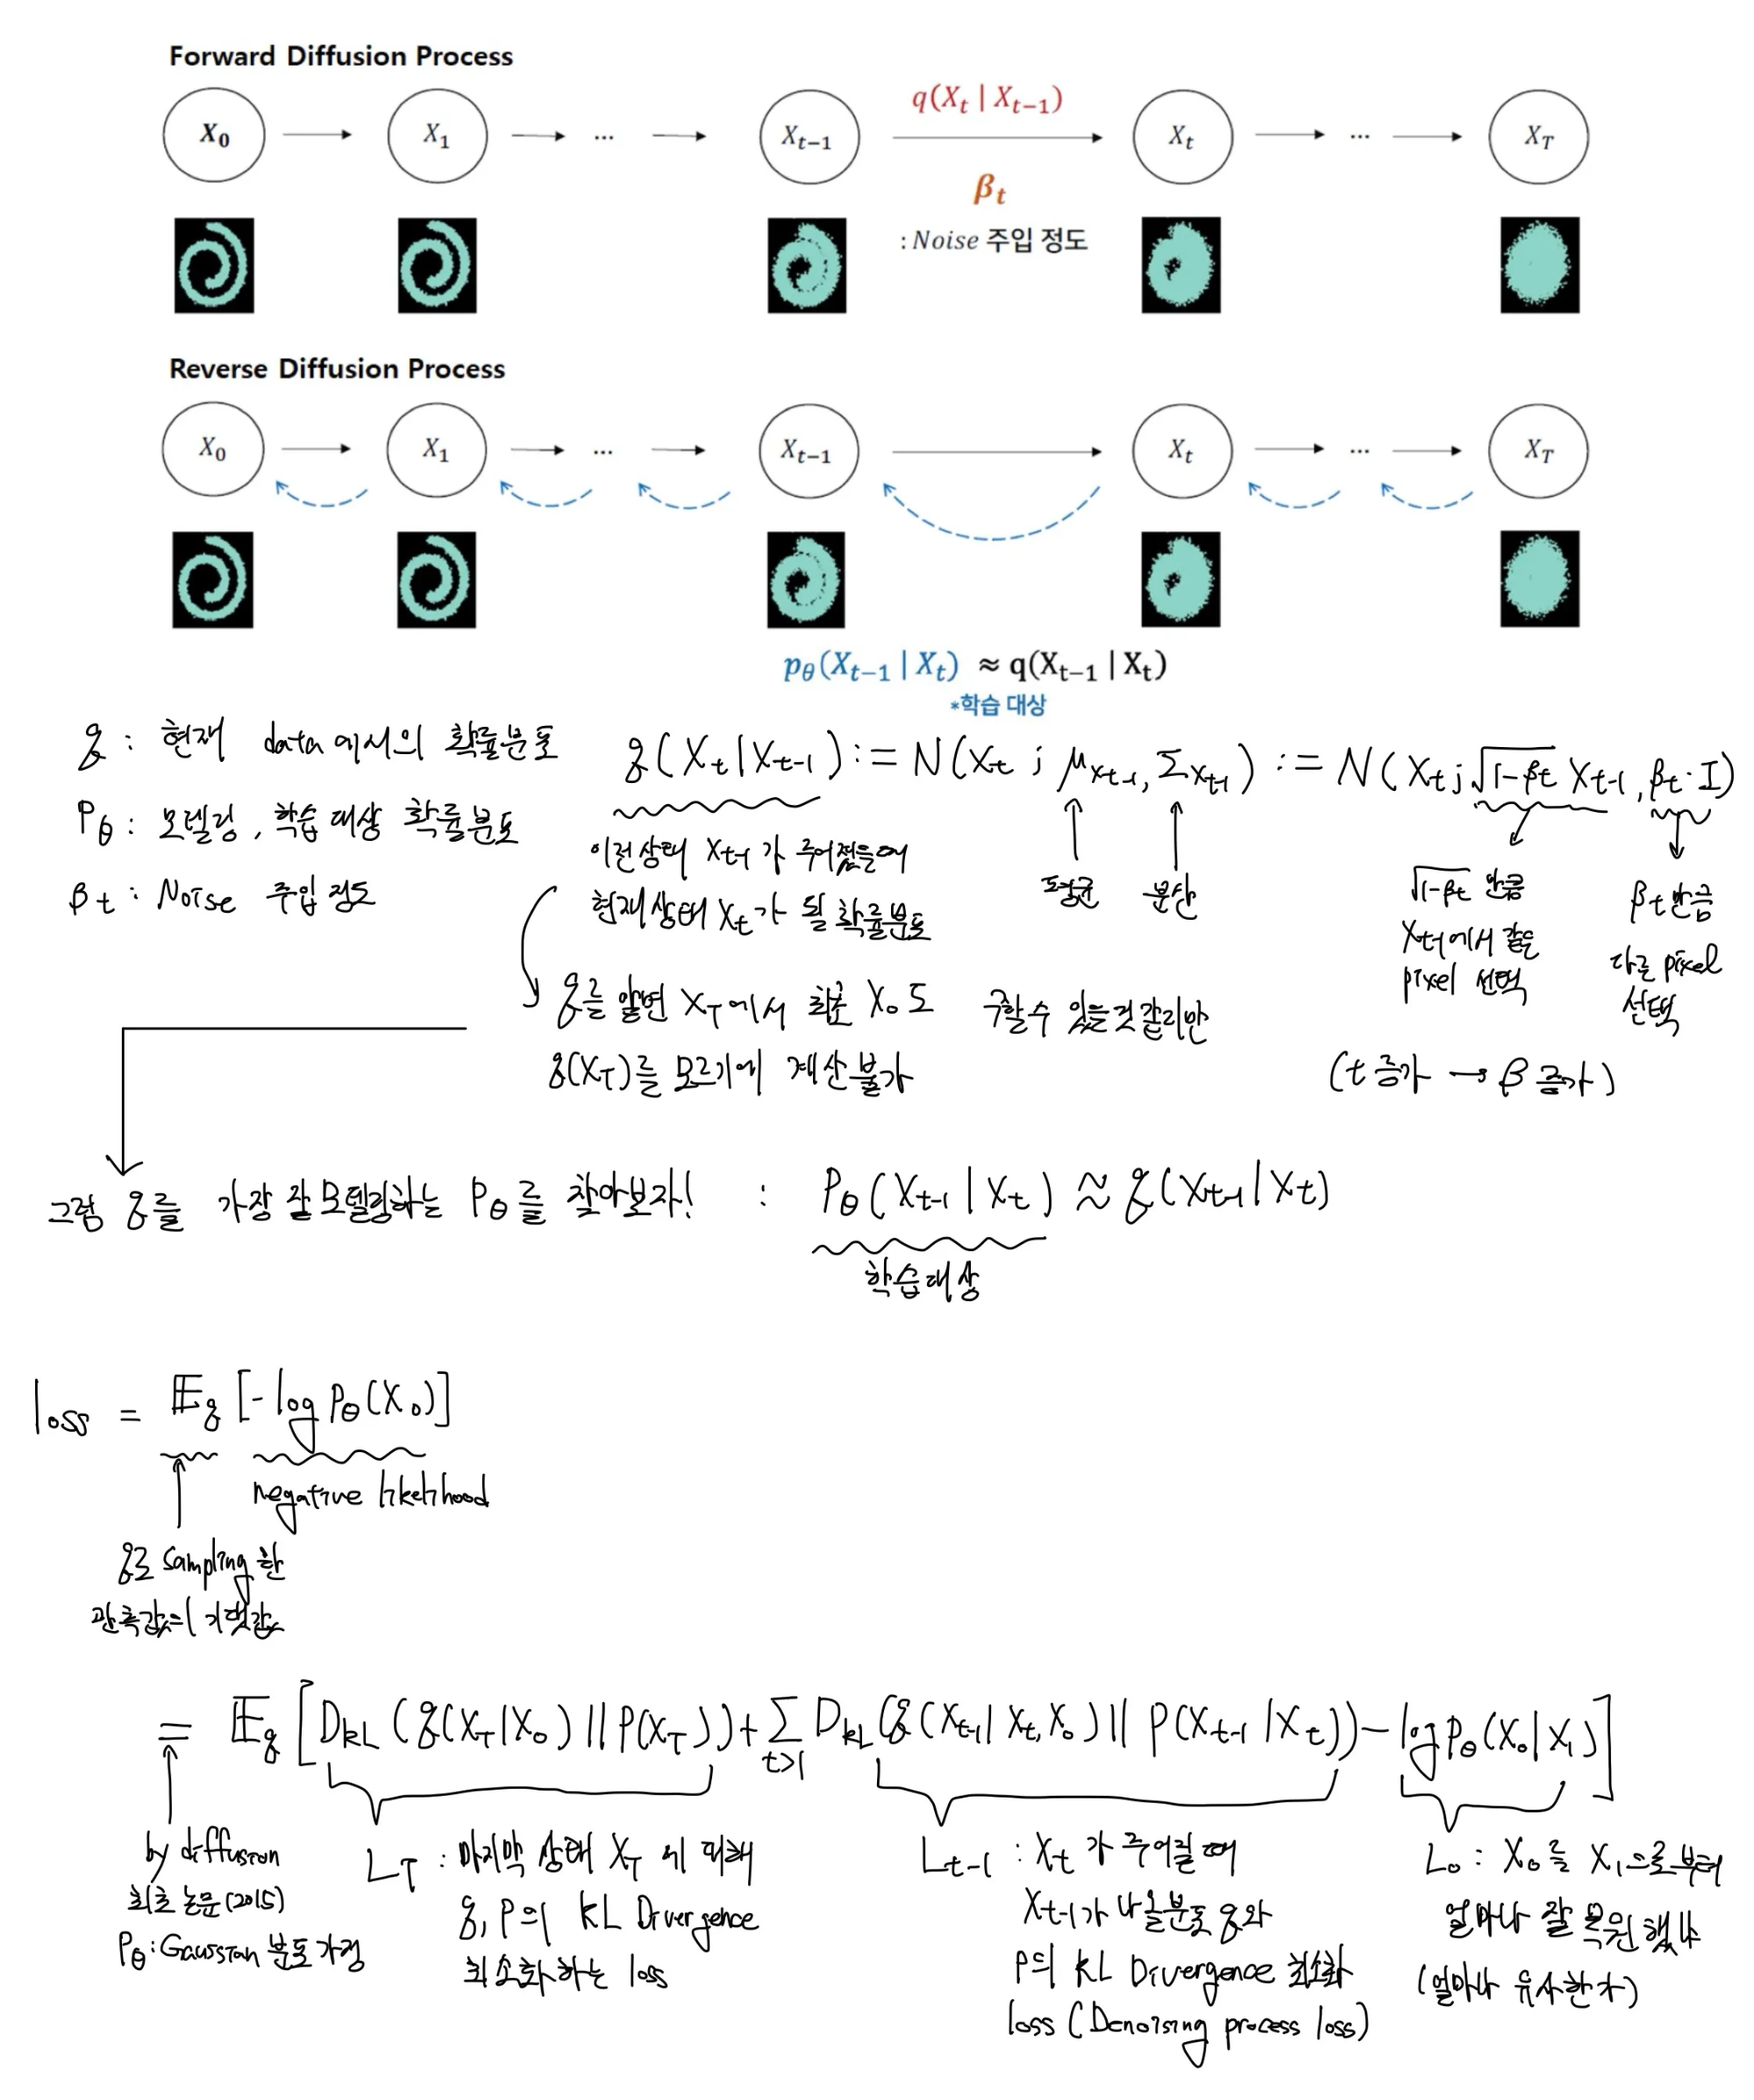 Forward Diffusion Process
X₀ X₁ ... Xₜ₋₁ q(Xₜ | Xₜ₋₁) Xₜ ... X_T
βₜ
: Noise 주입 정도
Reverse Diffusion Process
X₀ X₁ ... Xₜ₋₁ Xₜ ... X_T
p_θ(Xₜ₋₁ | Xₜ) ≈ q(Xₜ₋₁ | Xₜ)
*학습 대상
q : 현재 data에서의 확률분포
P_θ : 모델링, 학습 대상 확률분포
βₜ : Noise 주입 정도
q(Xₜ|Xₜ₋₁) := N(Xₜ ; μ_Xₜ₋₁, Σ_Xₜ₋₁) := N(Xₜ ; √(1-βₜ) Xₜ₋₁, βₜ·I)
이전상태 Xₜ₋₁가 주어졌을때
현재상태 Xₜ가 될 확률분포
평균
분산
√(1-βₜ) 만큼
Xₜ₋₁에서 같은
pixel 선택
βₜ만큼
다른 pixel
선택
(t 증가 → β 증가)
q를 알면 X_T에서 최초 X₀도 구할수 있을것 같지만
q(X_T)를 모르기에 계산불가
그럼 q를 가장 잘 모델링하는 P_θ를 찾아보자! : P_θ(Xₜ₋₁|Xₜ) ≈ q(Xₜ₋₁|Xₜ)
학습대상
loss = 𝔼_q [-log P_θ(X₀)]
negative likelihood
q로 sampling 한
관측값의 기댓값
= 𝔼_q [D_KL (q(X_T|X₀) || P(X_T)) + Σ_t>1 D_KL (q(Xₜ₋₁|Xₜ, X₀) || P(Xₜ₋₁|Xₜ)) - log P_θ(X₀|X₁)]
by diffusion
최초 논문(2015)
P_θ : Gaussian 분포 가정
L_T : 마지막 상태 X_T 에 대해
q, P의 KL Divergence
최소화 하는 loss
Lₜ₋₁ : Xₜ가 주어질 때
Xₜ₋₁가 나올분포 q와
P의 KL Divergence 최소화
loss (Denoising process loss)
L₀ : X₀를 X₁으로부터
얼마나 잘 복원했나
(얼마나 유사한가)